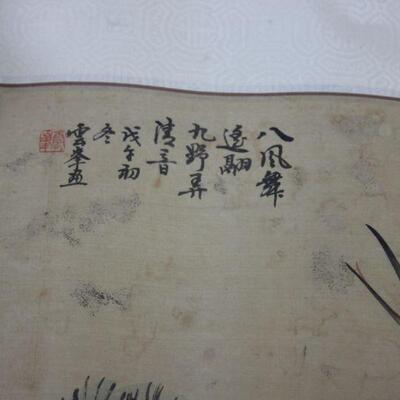 八風舞
遙翮
九野弄
清音
戊午初
冬
雲峯画